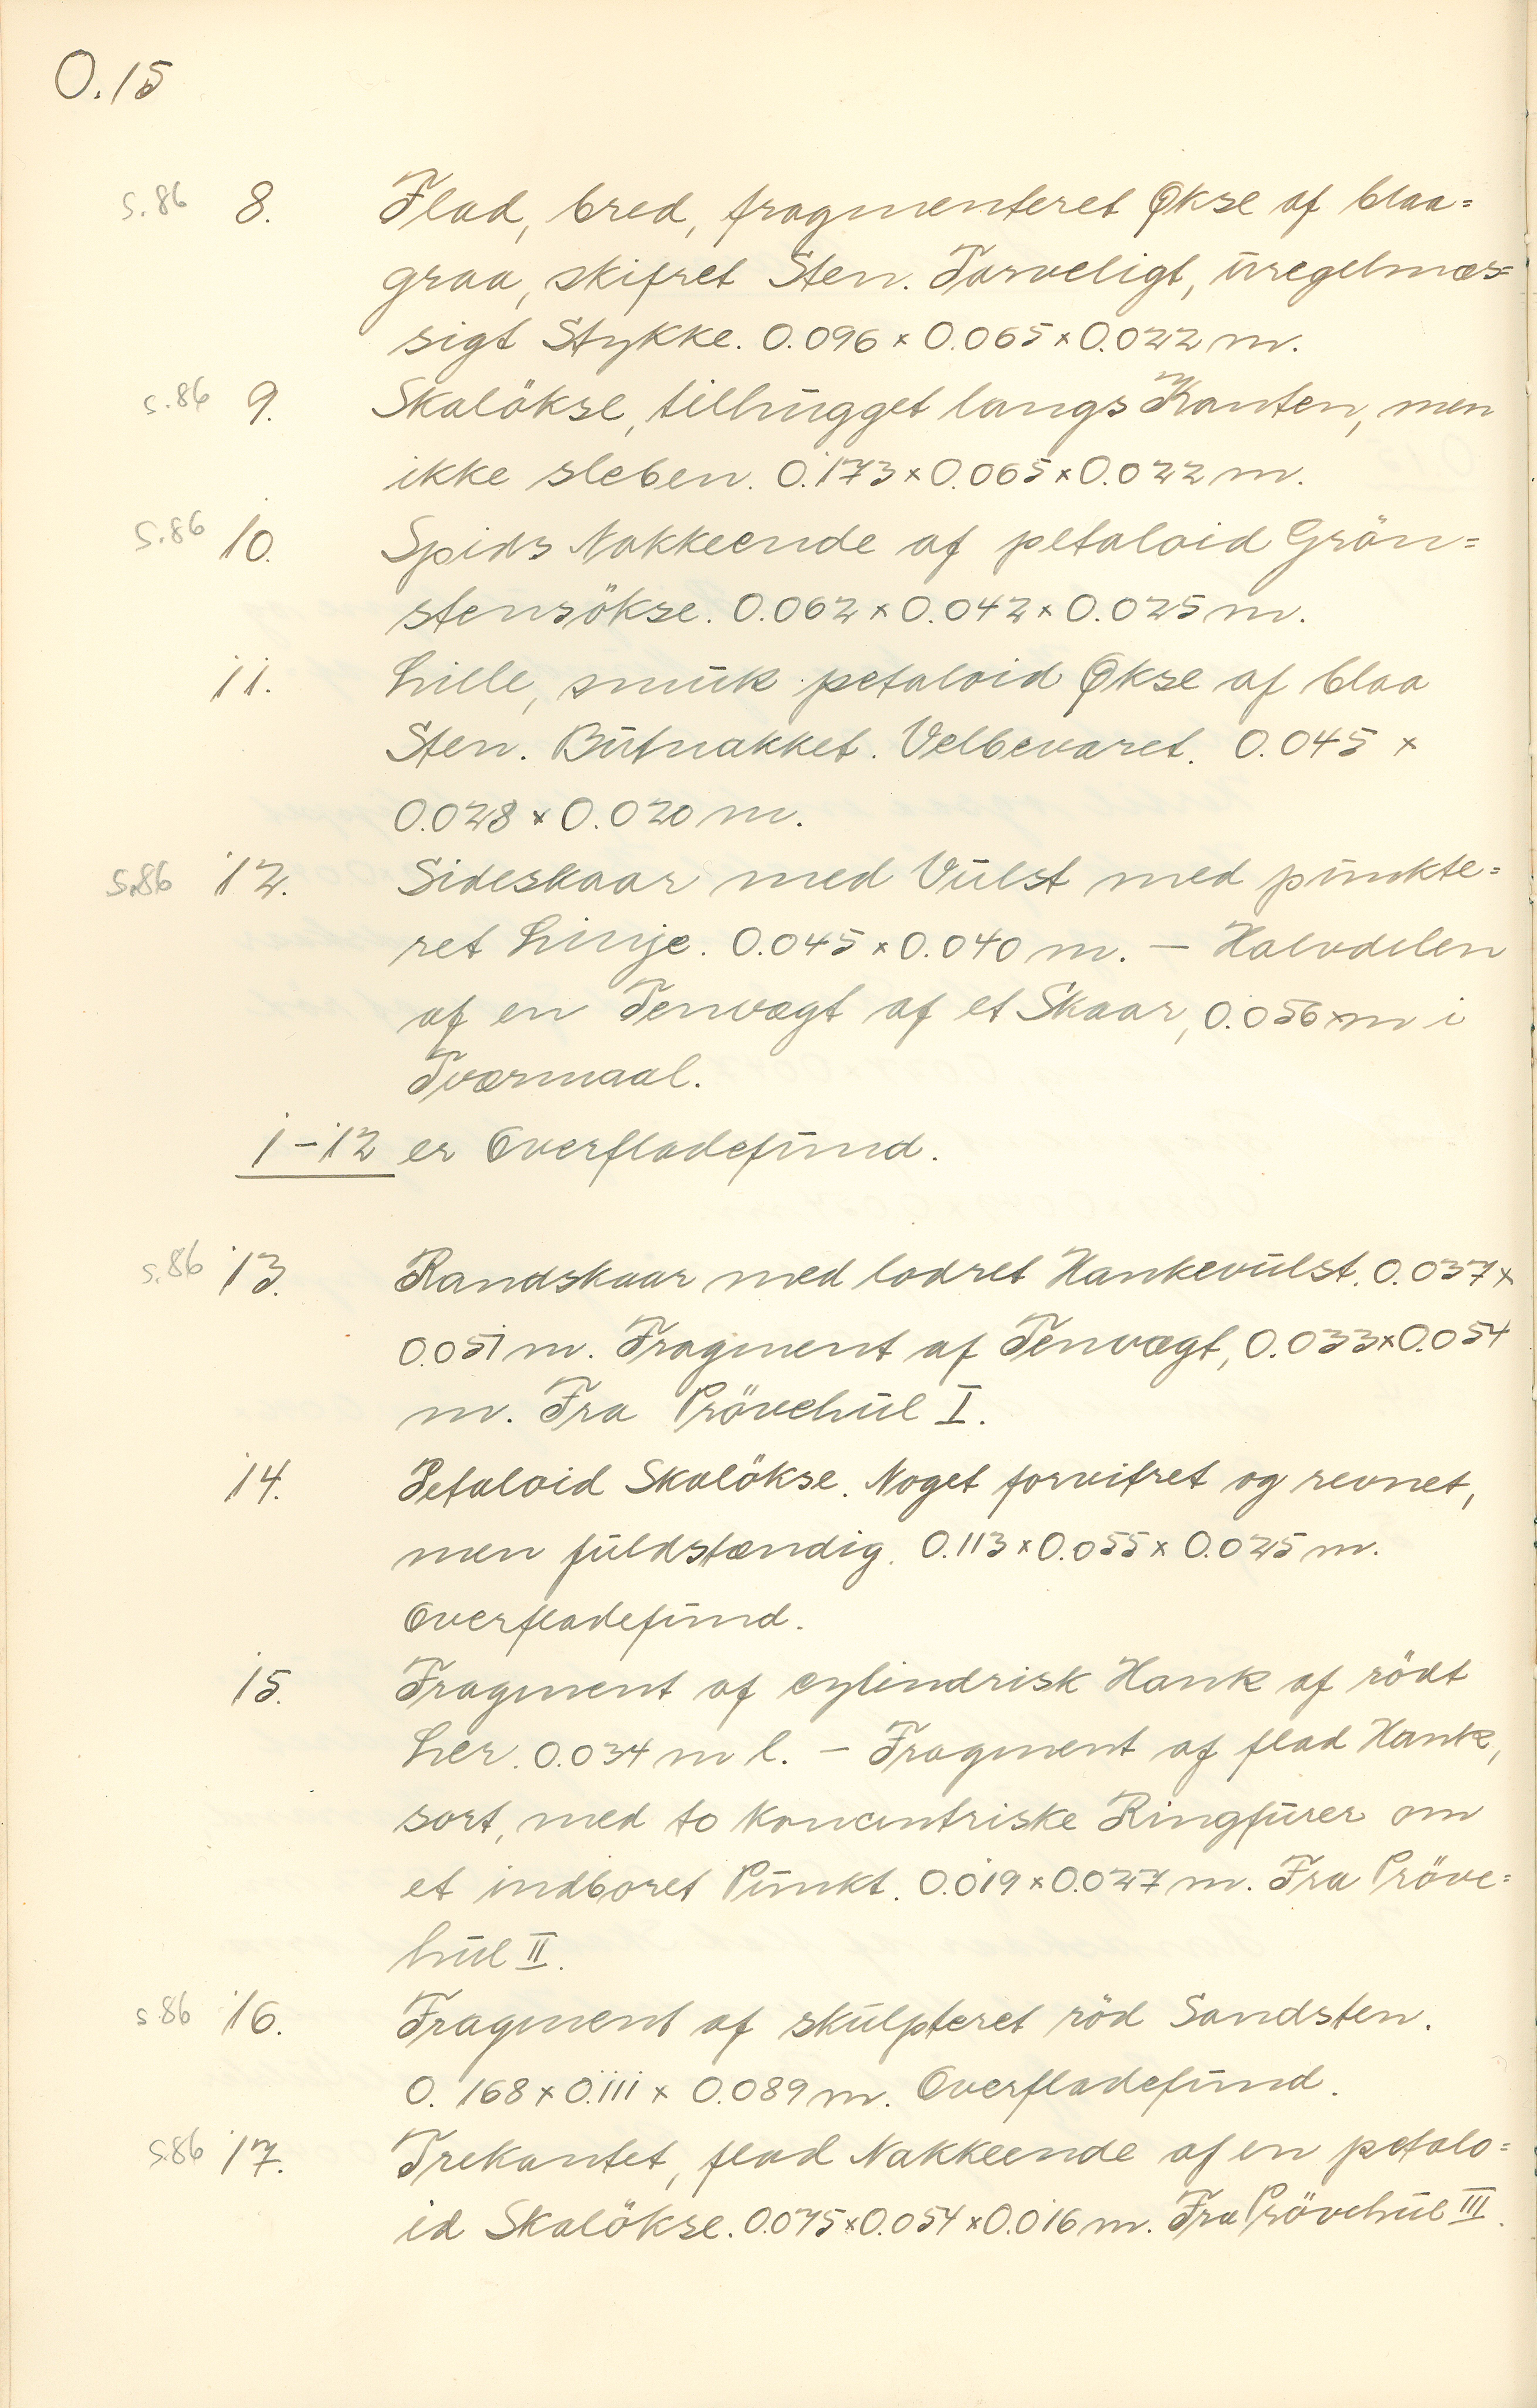 O.15
s.86 8. Flad, bred, fragmenteret Økse af blaa=
graa, skifret Sten. Farveligt, uregelmæs=
sigt Stykke. 0.096 × 0.065 × 0.022 m.
s.86 9. Skalökse, tilhugget langs Kanten, men
ikke sleben. 0.173 × 0.065 × 0.022 m.
S.86 10. Spids Nakkeende af petaloid Grön=
stensökse. 0.062 × 0.042 × 0.025 m.
11. Lille, smuk petaloid Økse af blaa
Sten. Butnakket. Velbevaret. 0.045 ×
0.028 × 0.020 m.
S.86 12. Sideskaar med Vulst med punkte=
ret Linje. 0.045 × 0.040 m. — Halvdelen
af en Tenvægt af et Skaar, 0.056 m i
Tværmaal.
1-12 er Overfladefund.
s.86 13. Randskaar med lodret Hankevulst. 0.037 ×
0.051 m. Fragment af Tenvægt, 0.033 × 0.054
m. Fra Prövehul I.
14. Petaloid Skalökse. Noget forvitret og revnet,
men fuldstændig. 0.113 × 0.055 × 0.025 m.
Overfladefund.
15. Fragment af cylindrisk Hank af rödt
Ler. 0.034 m l. — Fragment af flad Hank,
sort, med to koncentriske Ringfurer om
et indboret Punkt. 0.019 × 0.027 m. Fra Pröve=
hul II.
s.86 16. Fragment af skulpteret röd Sandsten.
0.168 × 0.111 × 0.089 m. Overfladefund.
S.86 17. Trekantet, flad Nakkeende af en petalo=
id Skalökse. 0.075 × 0.054 × 0.016 m. Fra Prövehul III.